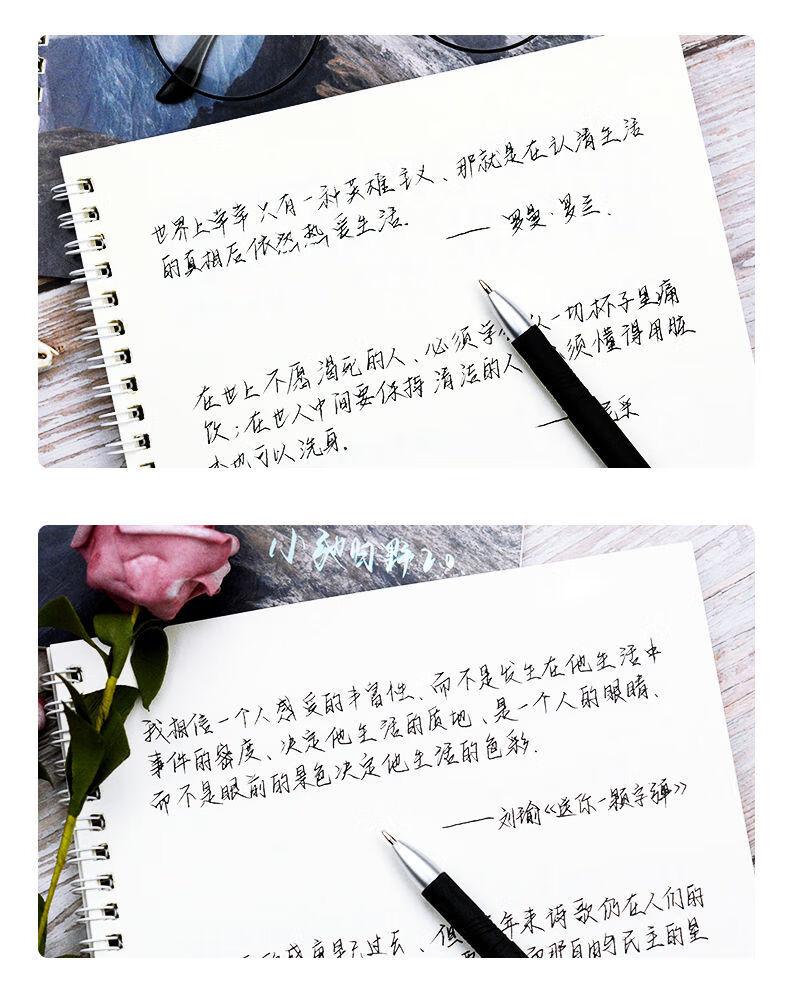 世界上幸幸只有一种英雄主义、那就是在认清生活
的真相后依然热爱生活.
—— 罗曼·罗兰.
在世上不愿渴死的人、必须学 一切杯子里痛
饮;在世人中间要保持清洁的人 须懂得用脏
水也可以洗身.
—— 尼采
小驰时野2.0
我相信一个人感受的丰富性、而不是发生在他生活中
事件的密度、决定他生活的质地、是一个人的眼睛、
而不是眼前的景色决定他生活的色彩.
—— 刘瑜《送你一颗子弹》
过去、但 年来诗歌仍在人们的
而那自由与民主的星